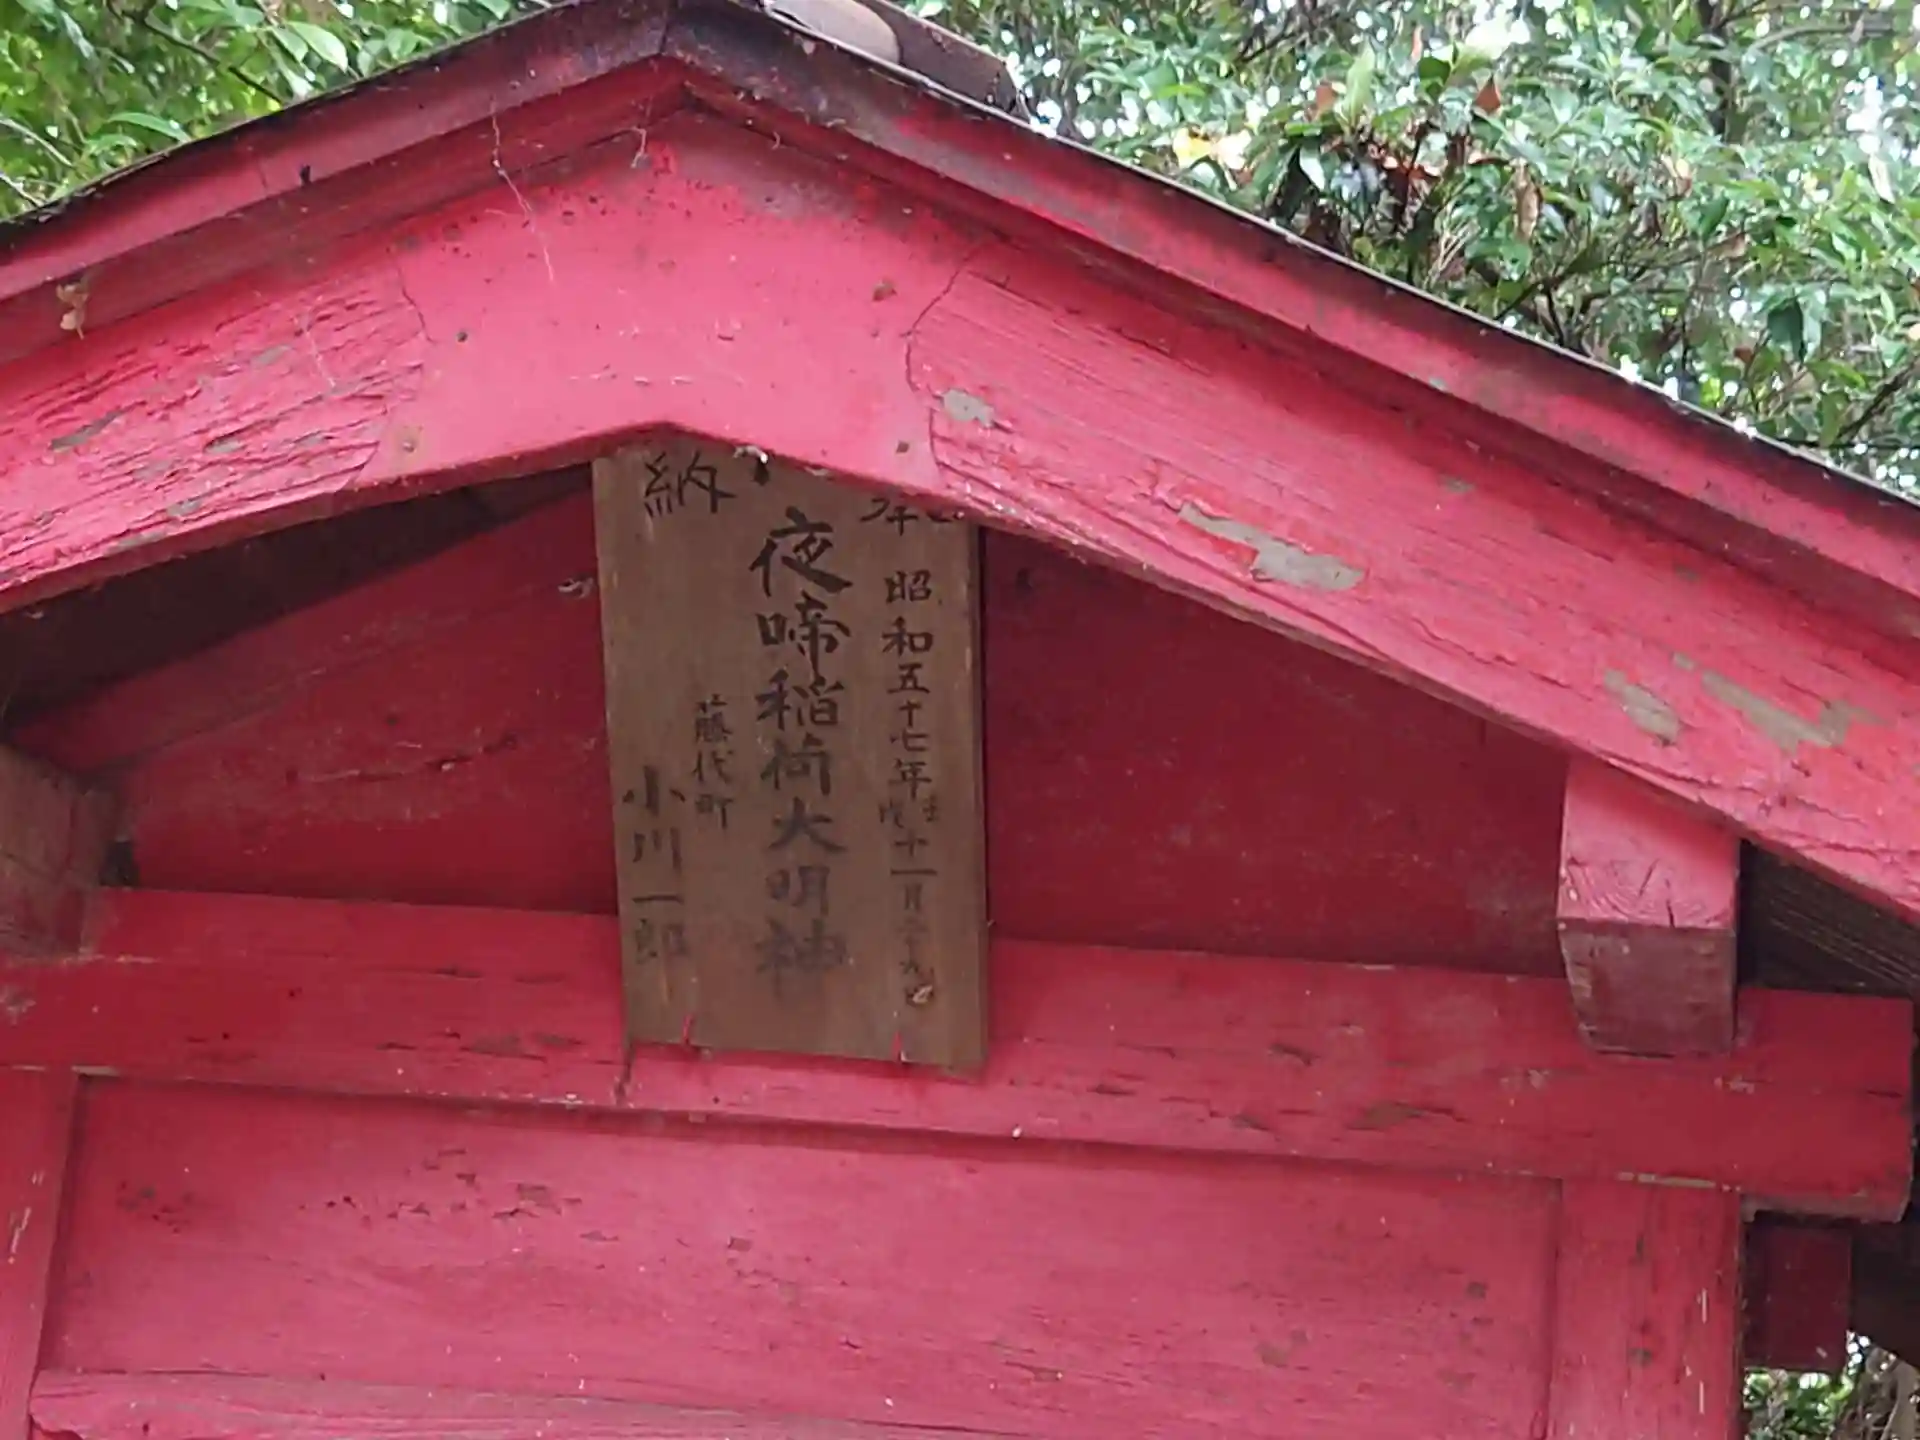 昭和五十七年壬戌十一月二十九日
夜啼稲荷大明神
藤代町
小川一郎
納